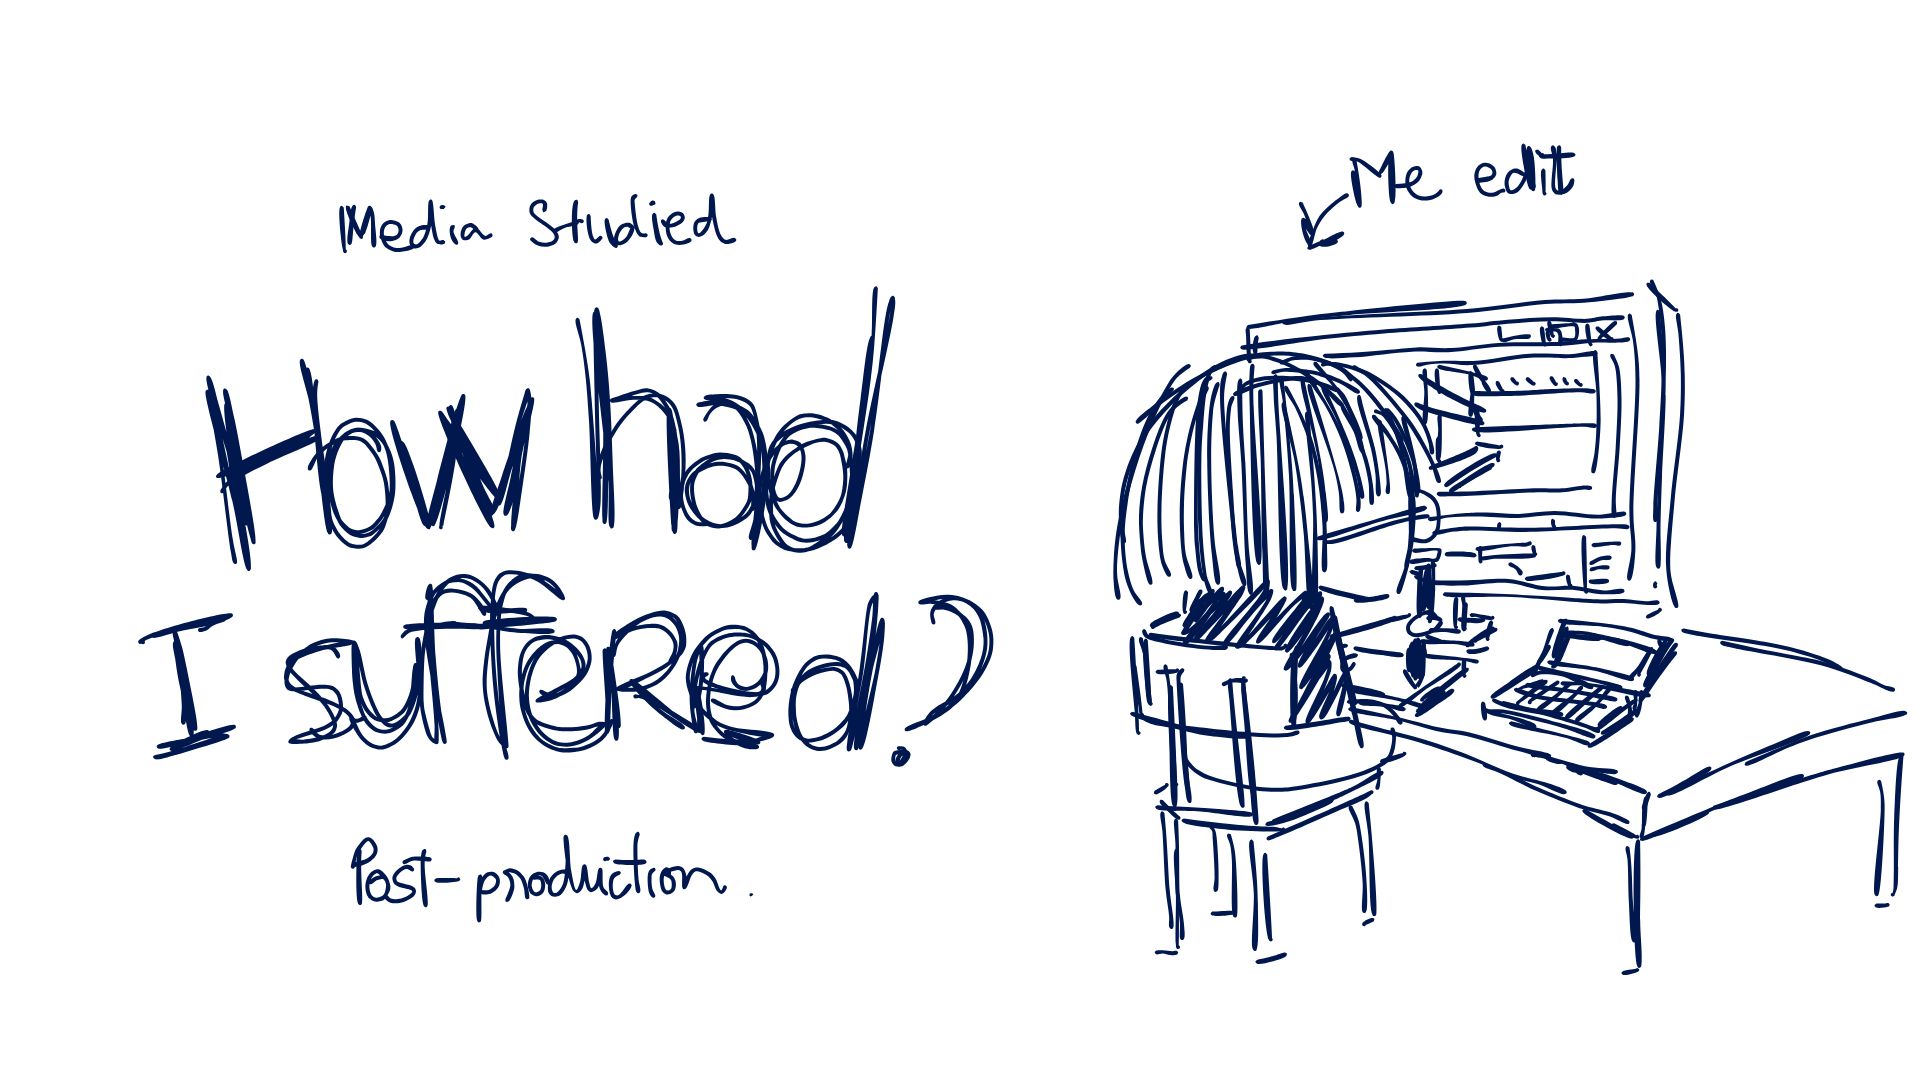 Media Studied
How had
I suffeRed?
Post-production.
Me edit